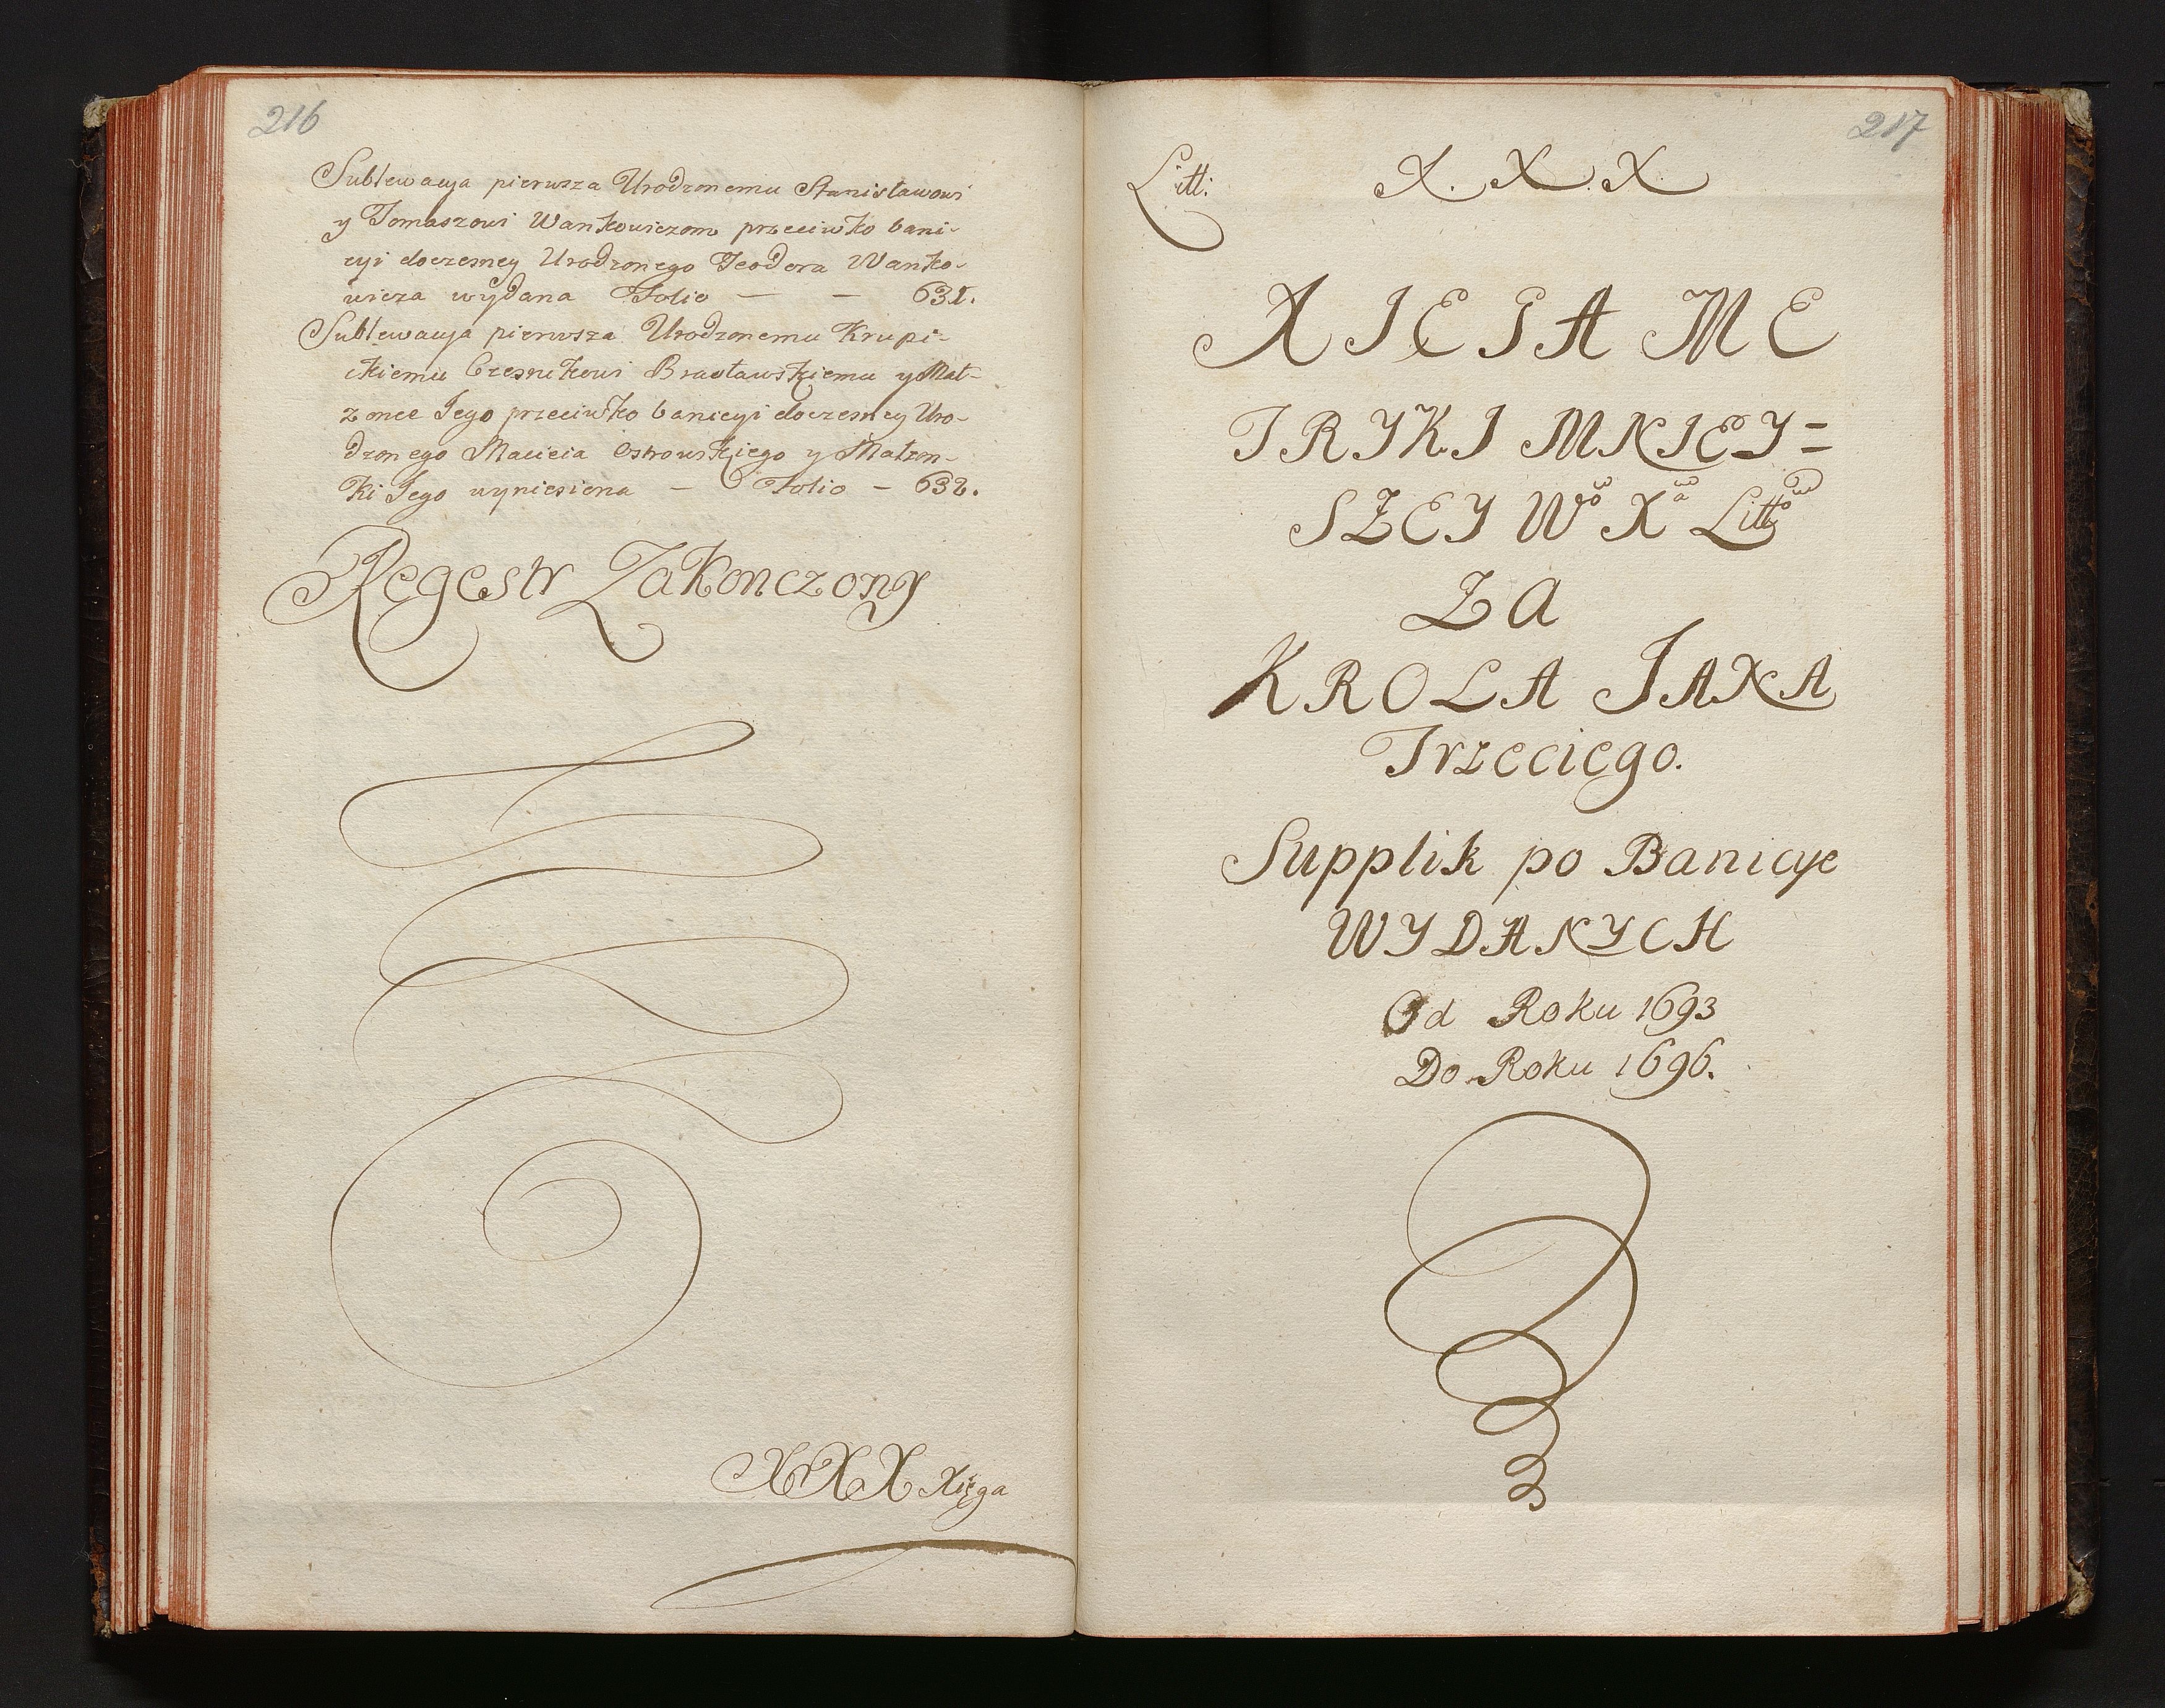 216
Sublewacya pierwsza Urodzonemu Stanisławowi
y Tomaszowi Wankowiczom przeciwko bani-
cyi doczesney Urodzonego Teodora Wanko-
wicza wydana Folio — — 631.
Sublewacya pierwsza Urodzonemu Krupi-
ckiemu Czesnikowi Bracławskiemu y Mał-
zonce Jego przeciwko banicyi doczesney Uro-
dzonego Macieia Ostrowskiego y Małzon-
ki Jego wyniesiona — Folio — 632.
Regestr Zakonczony
XXX Xięga
217
Litt: X. X. X
XIĘGA ME
TRYKI MNIEY=
SZEY Wo Xa Litto
ZA
KROLA JANA
Trzeciego.
Supplik po Banicye
WYDANYCH
Od Roku 1693
Do Roku 1696.